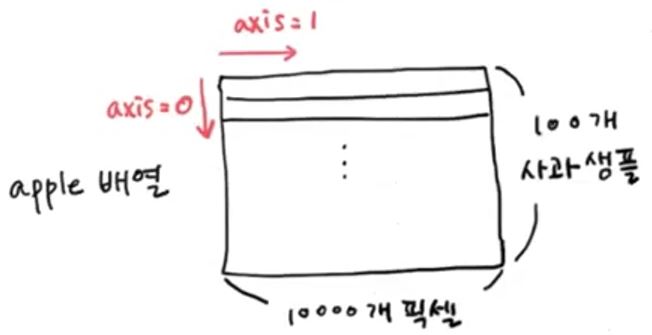 axis=1
axis=0
apple 배열
100개
사과 샘플
10000개 픽셀